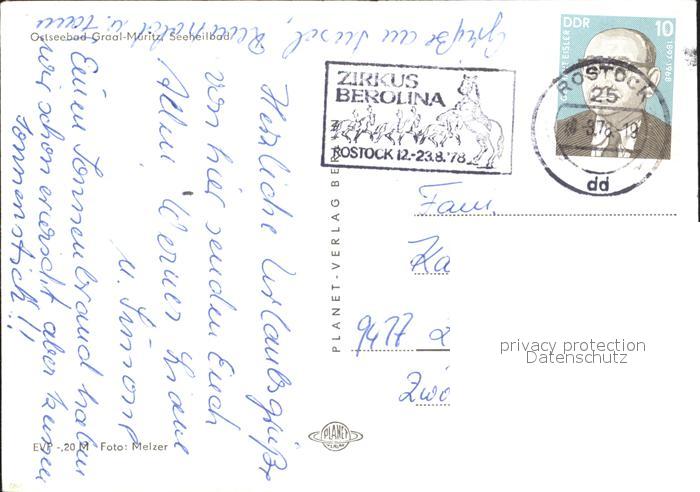 Ostseebad Graal-Müritz, Seeheilbad
Herzliche Urlaubsgrüße
von hier senden Euch
Allen Werner Liane
u. Simone
Einen Sonnenbrand haben
wir schon erwischt aber keinen
Sonnenstich!!
Grüße an Ursel, Reinhold u.
ZIRKUS
BEROLINA
ROSTOCK 12.-23.8.'78
DDR 10
EISLER
1897-1968
ROSTOCK
25
dd
Fam.
Ka
9477
Zwö
PLANET-VERLAG BE
privacy protection
Datenschutz
PLANET
VERLAG
EVP -,20 M Foto: Melzer